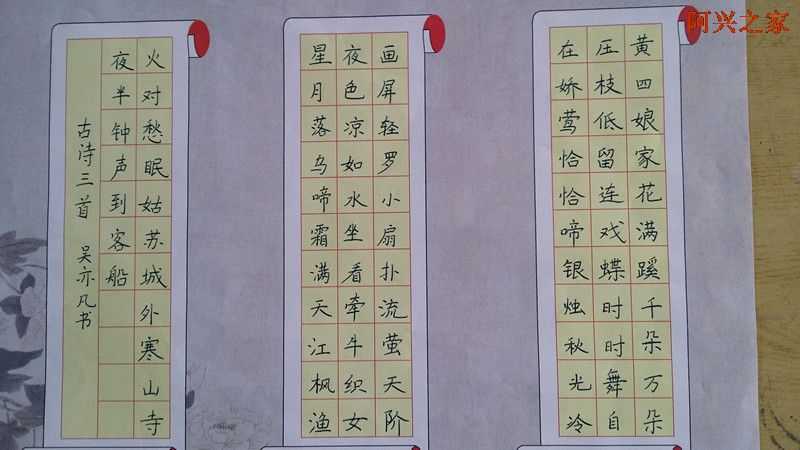 阿兴之家
黄四娘家花满蹊千朵万朵
压枝低留连戏蝶时时舞自
在娇莺恰恰啼银烛秋光冷
画屏轻罗小扇扑流萤天阶
夜色凉如水坐看牵牛织女
星月落乌啼霜满天江枫渔
火对愁眠姑苏城外寒山寺
夜半钟声到客船
古诗三首 吴亦凡书